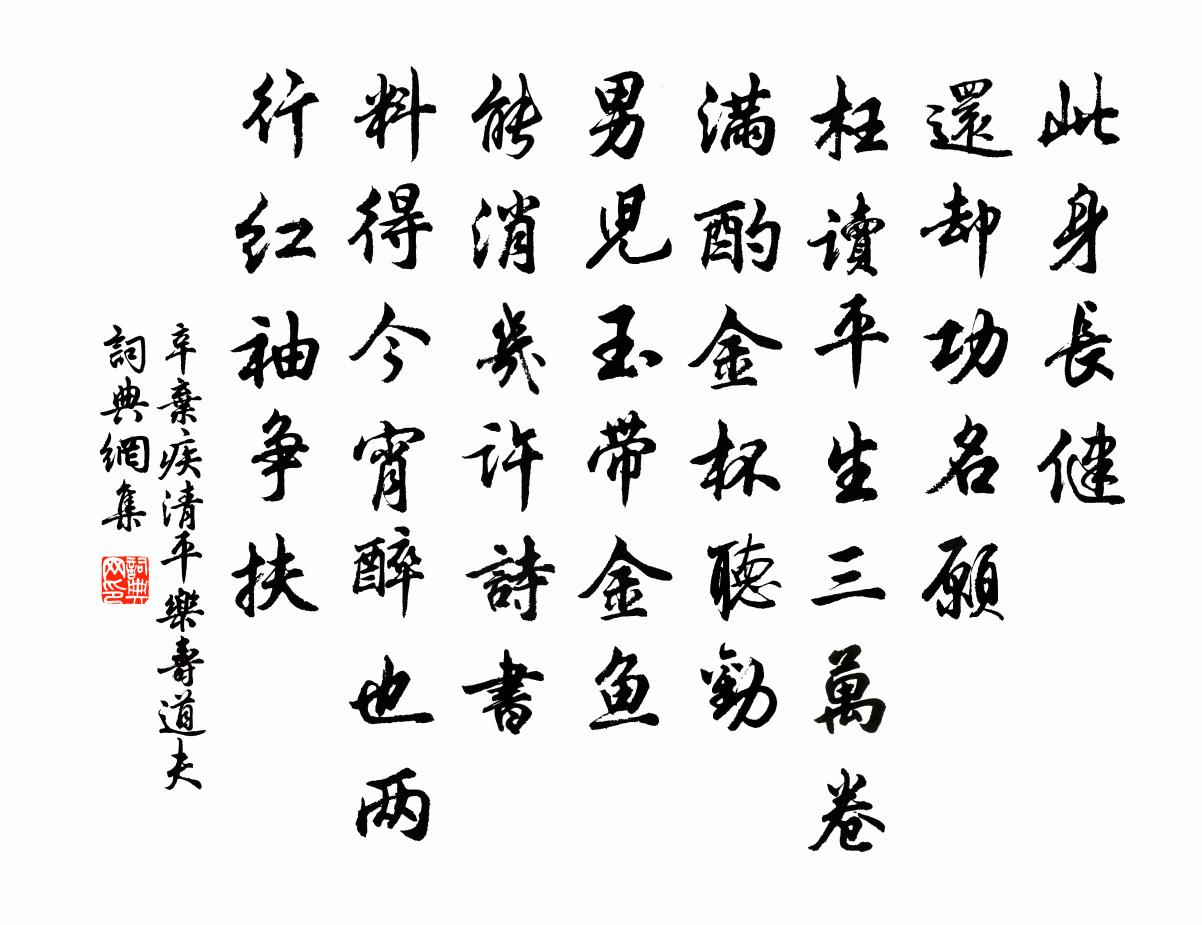 此身長健
還却功名願
枉讀平生三萬卷
滿酌金杯聽勸
男児玉帶金魚
能消幾許詩書
料得今宵醉也两
行红袖争扶
辛棄疾清平樂壽道夫
詞典網集
詞典网印